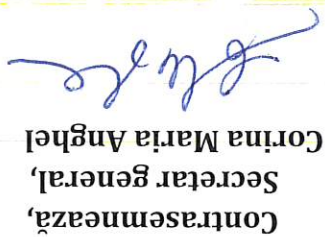 Contrasemnează,
Secretar general,
Corina Maria Anghel